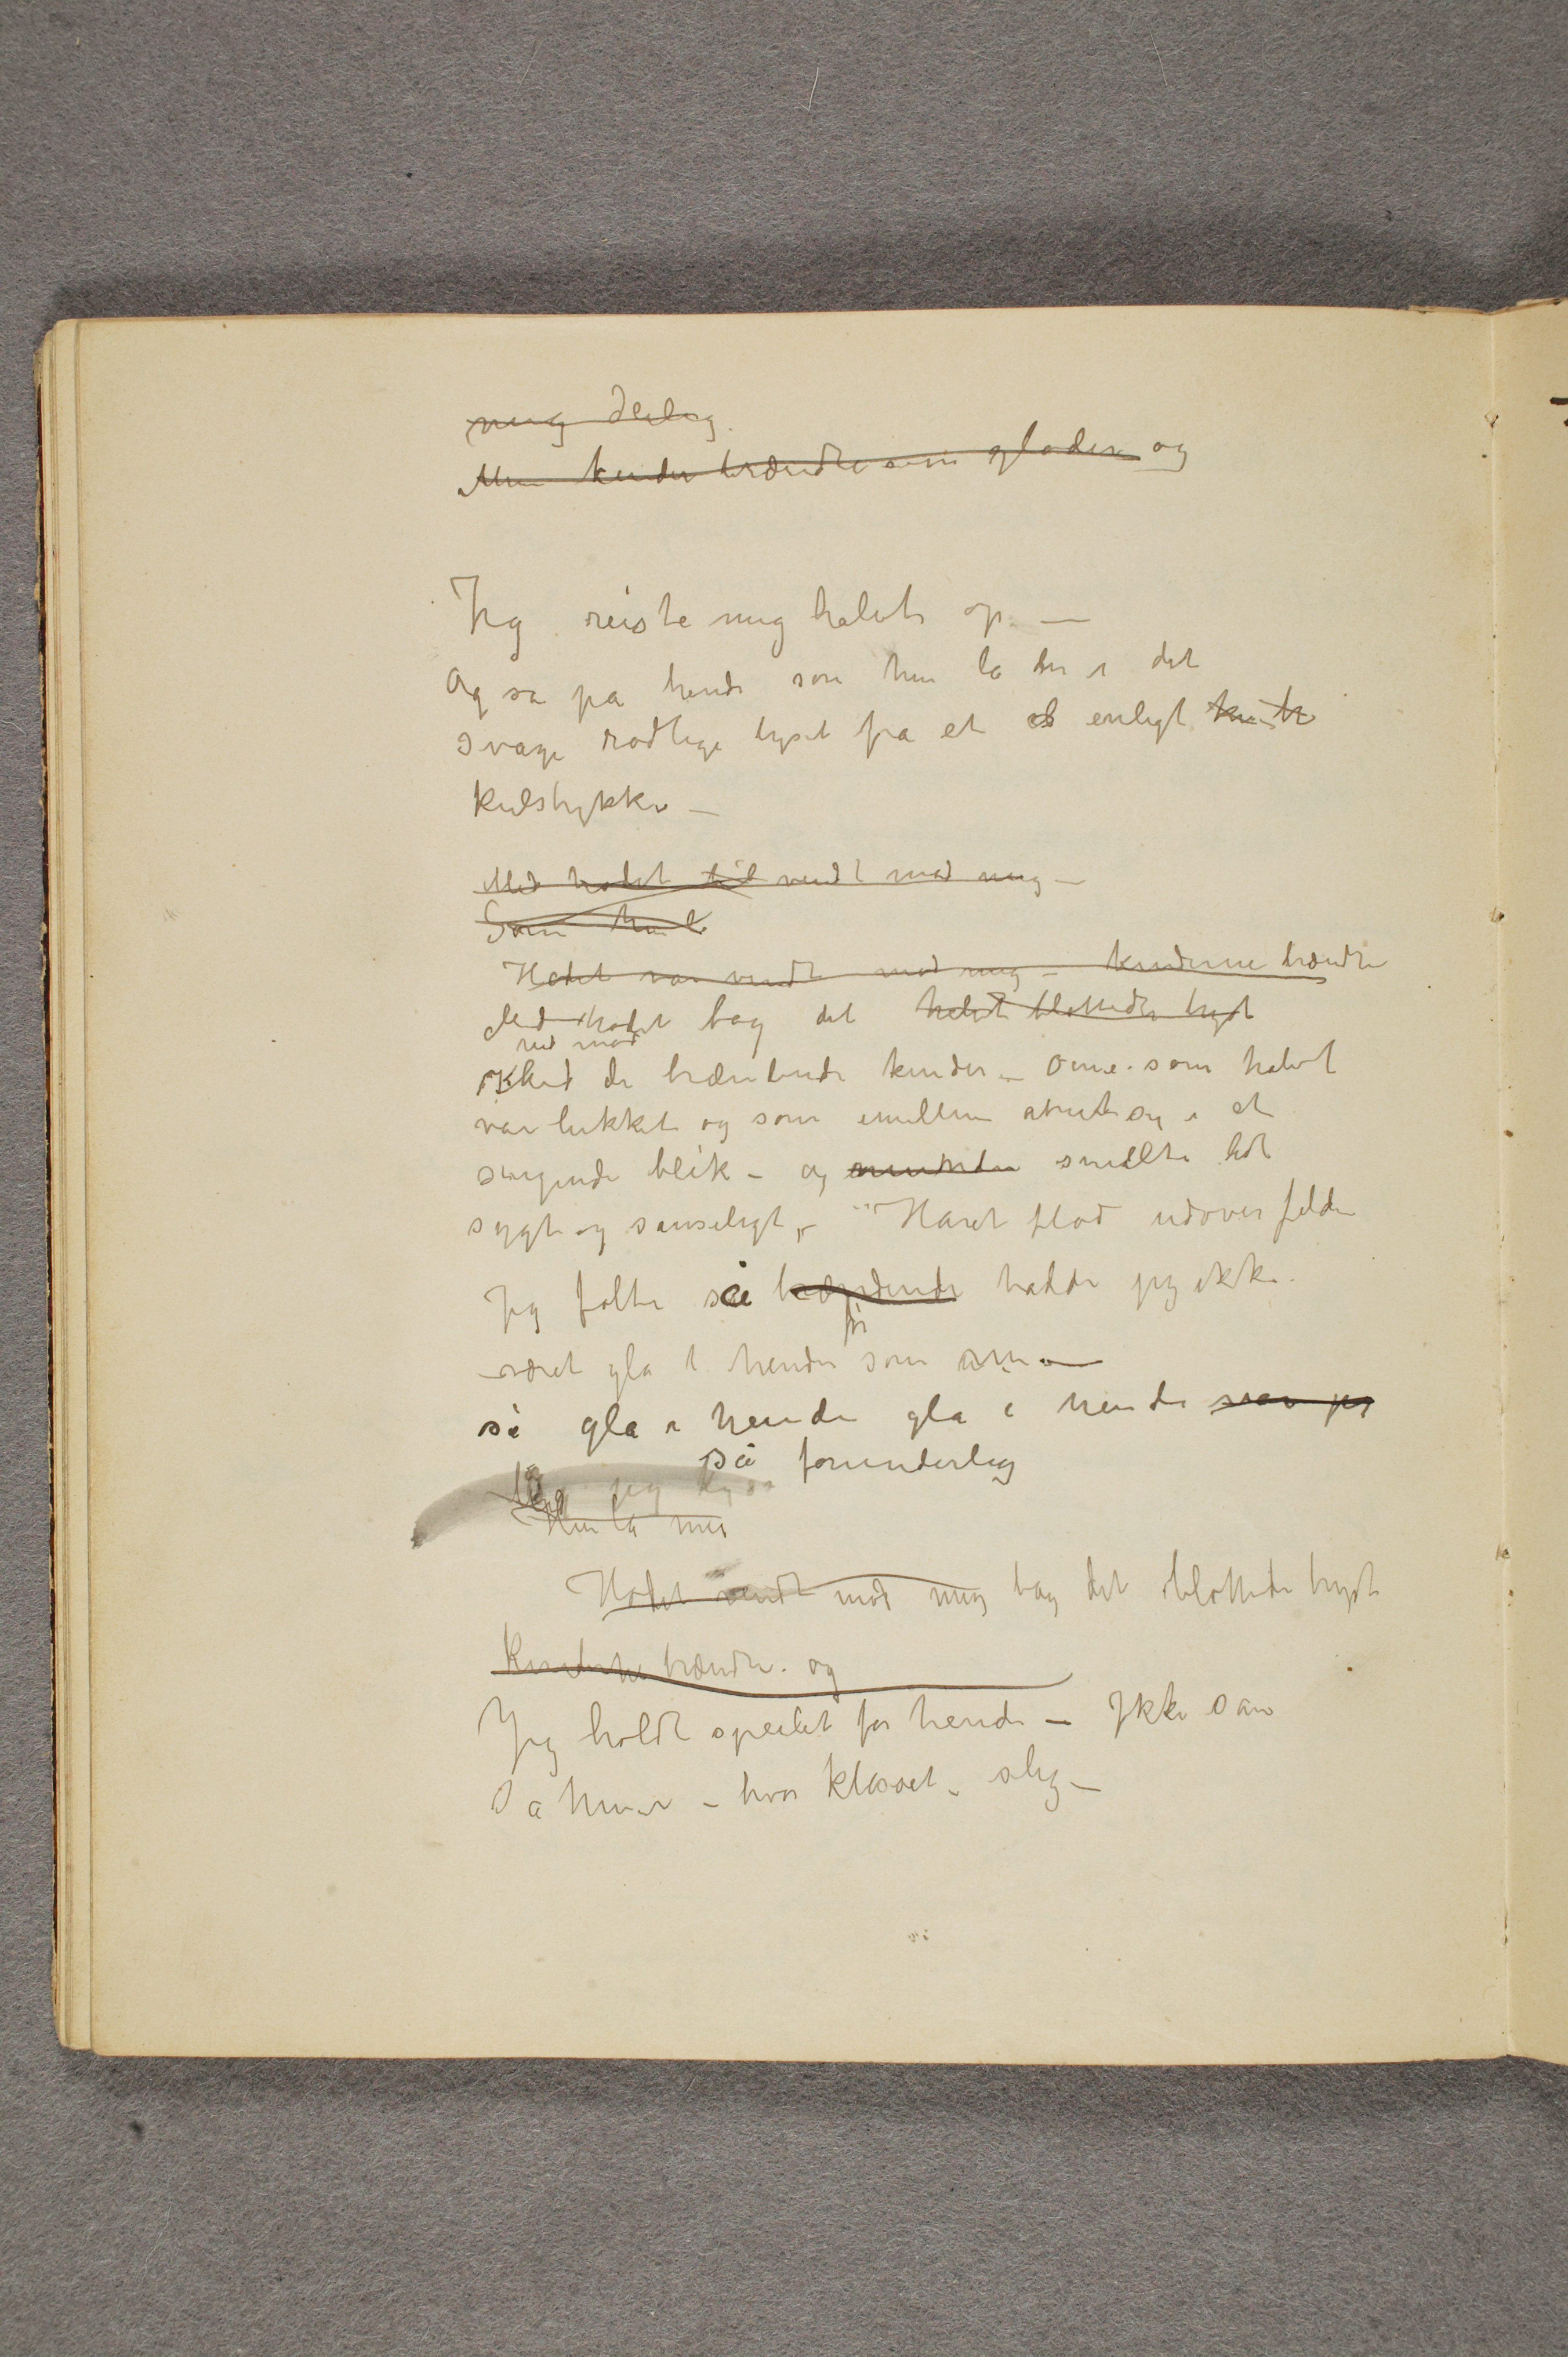 mig deilig.
Min kinder brændte som gloder og
Jeg reiste mig halvt op. —
Og så på hende som hun lå der i det
svage rødlige lyset fra et enligt
kulstykke —
Med hodet til vendt mod mig —
Som hun lå
Hodet var vendt mod mig – kinderne brændte
Med hodet bag det halvt blottede bryst
ned mod
de brændende kinder – øine som halvt
var lukket og som imellem åbnet sig i et
sugende blik – og munden smilte lidt
sygt og sanseligt – Håret flød udover felden
Jeg følte så brændende hadde jeg ikke
været gla i hende før som nu —
så gla i hende gla i hende som jeg
så forunderlig
Hun lå mer
Hodet vendt mod mig bag det blottede bryst
Kinderne brændte. og
Jeg holdt speilet for hende — Ikke san
Sa hun – hvor klasset – slig —